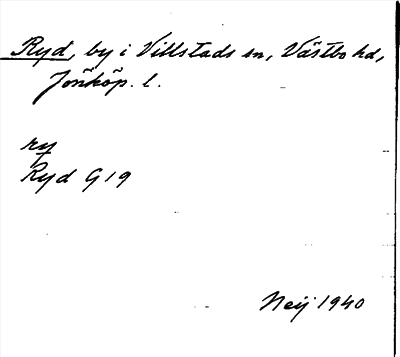 Ryd, by i Villstads sn, Västbo hd,
Jönköp. l.
ry
Ryd G 19
Neij 1940